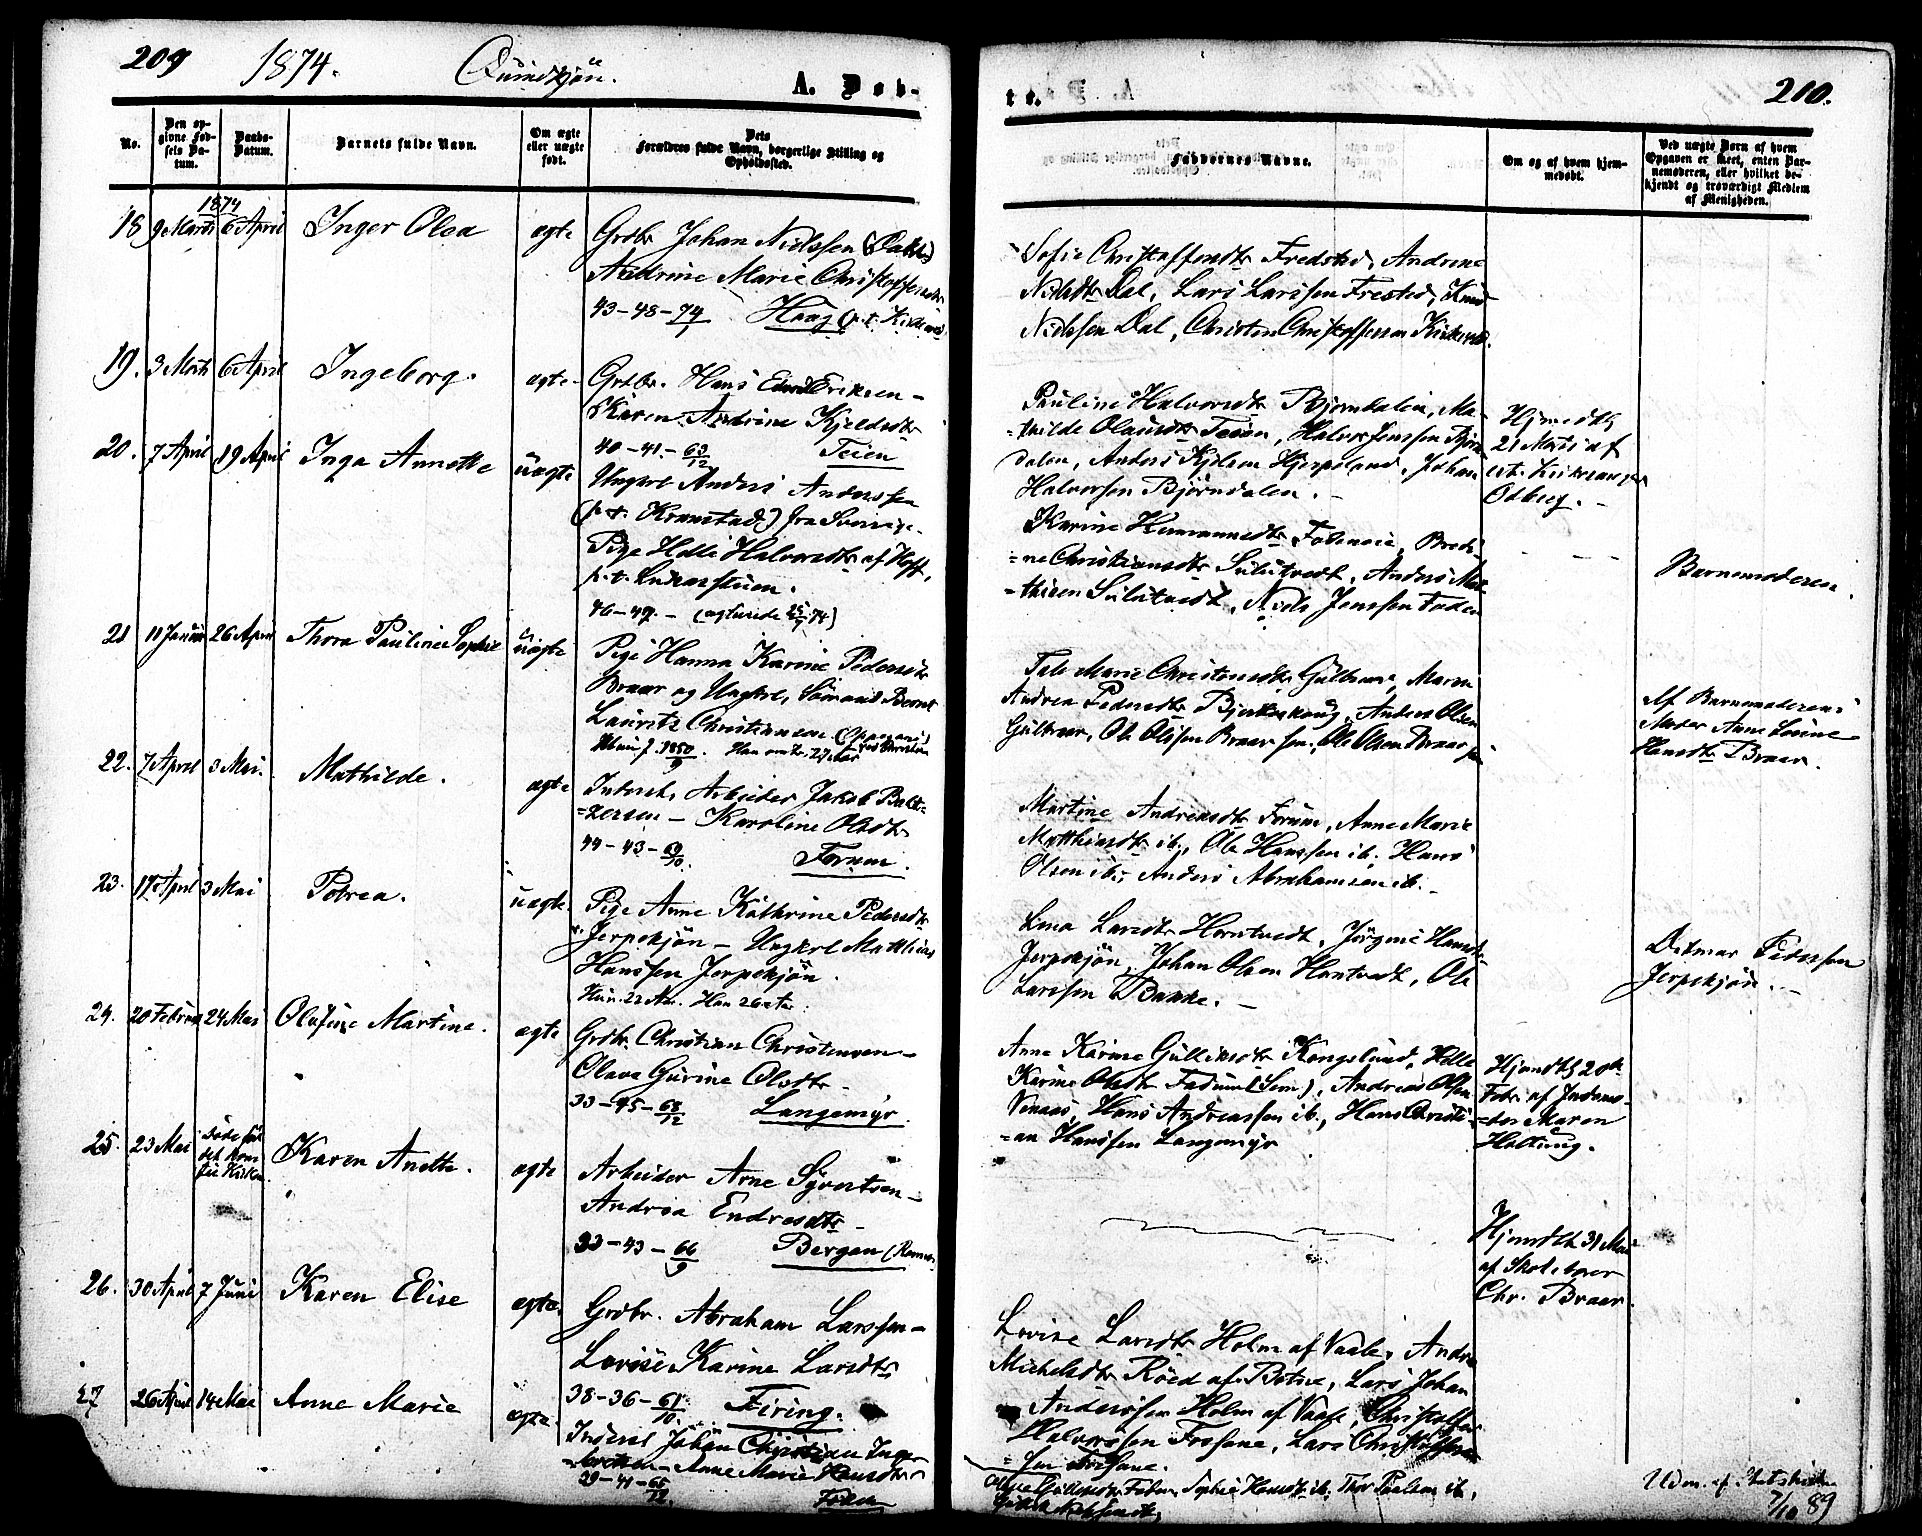 209 1874. Quindkjön. A. Døb-
No.
Den op-
givne Fød-
sels Da-
tum.
Daabs-
Datum.
Barnets fulde Navn.
Om ægte
eller uægte
født.
Dets
Forældres fulde Navn, borgerlige Stilling og
Opholdssted.
1874
18 9 Marts 6 April Inger Olea ægte Grdbr Johan Nielssen (Dahl)
Andrine Marie Christoffersdtr
43-48-74 Haag (p.t.
19. 3 Marts 6 April Ingeborg. ægte Grdbr. Hans Edvard Eriksen -
Karen Andrine Kjeldsdtr
40-41-63/12 Teien
20. 7 April 19 April Inga Annette uægte Ungkrl Anders Anderssen
(p.t. Kronstad) fra Sverrige.
Pige Helle Halvorsdtr af Hoff,
p.t.
46-49. - (ægtviede 74)
21 11 Januar 26 April Thora Pauline Sophie uægte Pige Hanna Karine Pedersdtr
Braar og Ungkrl, Sømand Bernt
Laurits Christiansen
1850. Han 27 Aar
22. 7 April 3 Mai. Mathilde. ægte Inderst, Arbeider Jakob Balt-
=zersen - Karoline Olsdtr
44-43-69/10. Forum.
23. 17 April 3 Mai Petrea. uægte. Pige Anne Kathrine Pedersdtr
Jerpekjön - Ungkrl Mathias
Hanssen Jerpekjön.
Hun 22 Aar. Han 26 Aar.
24. 20 Februar 24 Mai Olufine Martine. ægte Grdbr. Christian Christensen -
Olava Gurine Olsdtr -
33-45-68/12 Langemyr.
25. 23 Mai
Døde før
det kom
til Kirken
Karen Anette. ægte Arbeider Arne Syvertsen -
Andrea Endresdtr -
33-43-66/9 Bergan
26. 30 April 7 Juni Karen Elise ægte. Grdbr. Abraham Larssen -
Lovise Karine Larsdtr
38-36-61/10. Firing.
27 26 April 14 Mai Anne Marie ægte. Inderst Johan Christian Inge-
Anne Marie Hansdtr
29-41-65/12.
210.
te.
Faddernes Navne.
Om og af hvem hjem-
medøbt.
Ved uægte Børn af hvem
Opgaven er skeet, enten Bar-
nemoderen, eller hvilket be-
kjendt og troværdigt Medlem
af Menigheden.
Sofie Christoffersdtr Fredsted, Andrine
Nielsdtr Dal, Lars Larssen Frested, Knud
Nielssen Dal, Christen Christoffersen
Pauline Halvorsdtr Bjørndalen, Ma-
=thilde Olausdtr Teien, Halvor Jenssen Bjørn-
dalen, Anders Kjelsen Hjerpeland, Johan
Halvorsen Bjørndalen. -
Hjmdøbt
21 Marts af
Odberg. -
Karine Hermannsdtr, Bredi-
=ne Christiansdtr Sulutvedt, Anders Mat-
=thisen Sulutvedt, Niels Jenssen Faden
Barnemoderen.
Tale Marie Christensdtr Gultvar, Maren
Andrea Pedersdtr Bjerkeskoug, Anders Olsen
Gultvar, Ole Olssen Braar sen., Ole Olsen Braar jun
Af Barnemoderens
Moder Anne Lovine
Hansdtr Braar.
Martine Andreasdtr Forum, Anne Marie
Matthiasdtr ib., Ole Hanssen ib., Hans
Olsen ib., Anders Abrahamsen ib. -
Lina Larsdtr Horntvedt, Jörgine Hansdtr
Jerpekjön, Johan Olsen Horntvedt, Ole
Larssen Bakke. -
Ditmar Pedersen
Jerpekjön. -
Anne Karine Gulliksdtr Kongslund, Helle
Karine Olsdtr Fadum (Sem), Andreas Olsen
Vinaas, Hans Andreassen ib., Hans Christi-
=an Hanssen Langemyr
Hjemdøbt 20de
Febr. af Jordmo-
=der Maren
Holtung.
Hjemdøbt 31 Mai
af Skolelærer
Chr. Braar.
Lovise Larsdtr Holm af Vaale, Andrea
Michelsdtr Röed af Botne, Lars Johan
Anderssen Holm af Vaale, Christoffer
Halvorssen Frosane, Lars Christoffer-
=sen Frosane.
Sophie Hansdtr ib. Thor Paulsen ib,
Udm. af Statskirken
7/10 89